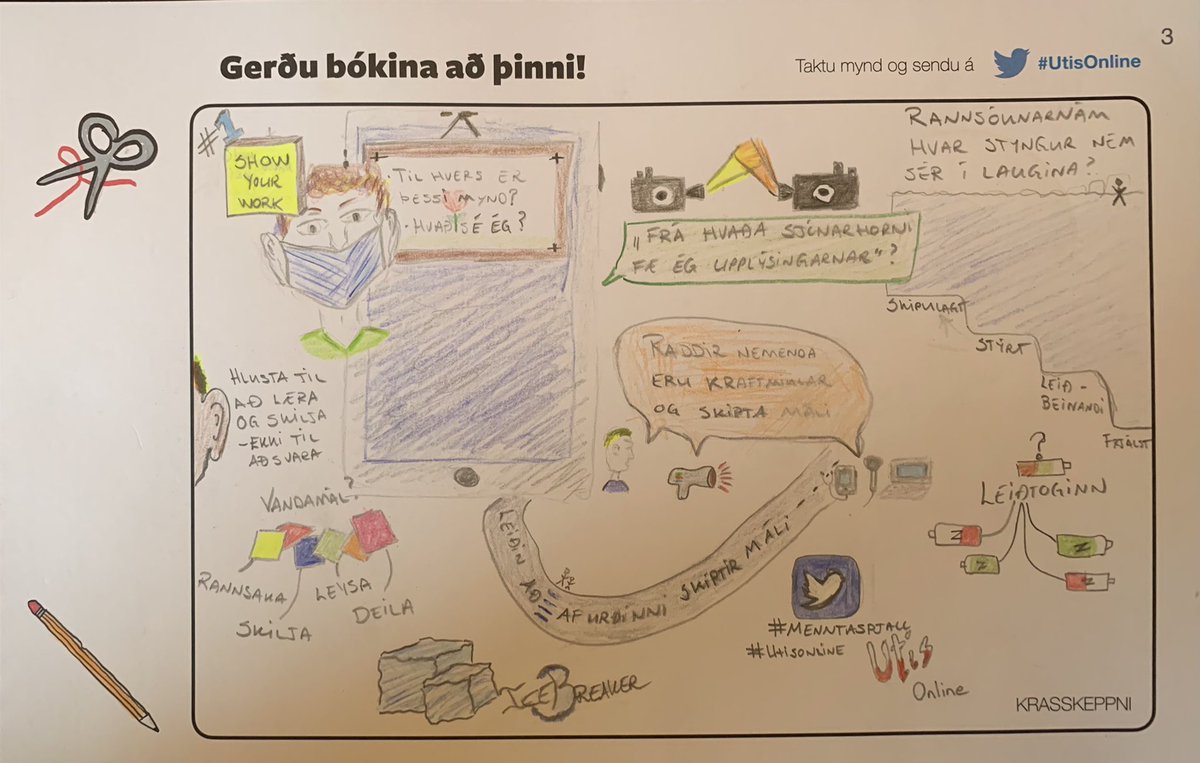 3
Gerðu bókina að þinni!
Taktu mynd og sendu á #UtisOnline
#1
SHOW
YOUR
WORK
• TIL HVERS ER
ÞESSI MYND?
• HVAÐ SÉ ÉG?
„FRÁ HVAÐA SJÓNARHORNI
FÆ ÉG UPPLÝSINGARNAR“?
RANNSÓKNARNÁM
HVAR STYNGUR NEM
SÉR Í LAUGINA?
SKIPULAGT
STÝRT
LEIÐ-
BEINANDI
FRJÁLST
HLUSTA TIL
AÐ LÆRA
OG SKILJA
- EKKI TIL
AÐ SVARA
RADDIR NEMENDA
ERU KRAFTMIKLAR
OG SKIPTA MÁLI
VANDAMÁL?
RANNSAKA
SKILJA
LEYSA
DEILA
LEIÐIN AÐ AFURÐINNI SKIPTIR MÁLI
?
LEIÐTOGINN
#MENNTASPJALL
#UTISONLINE
Utís
Online
ICEBREAKER
KRASSKEPPNI